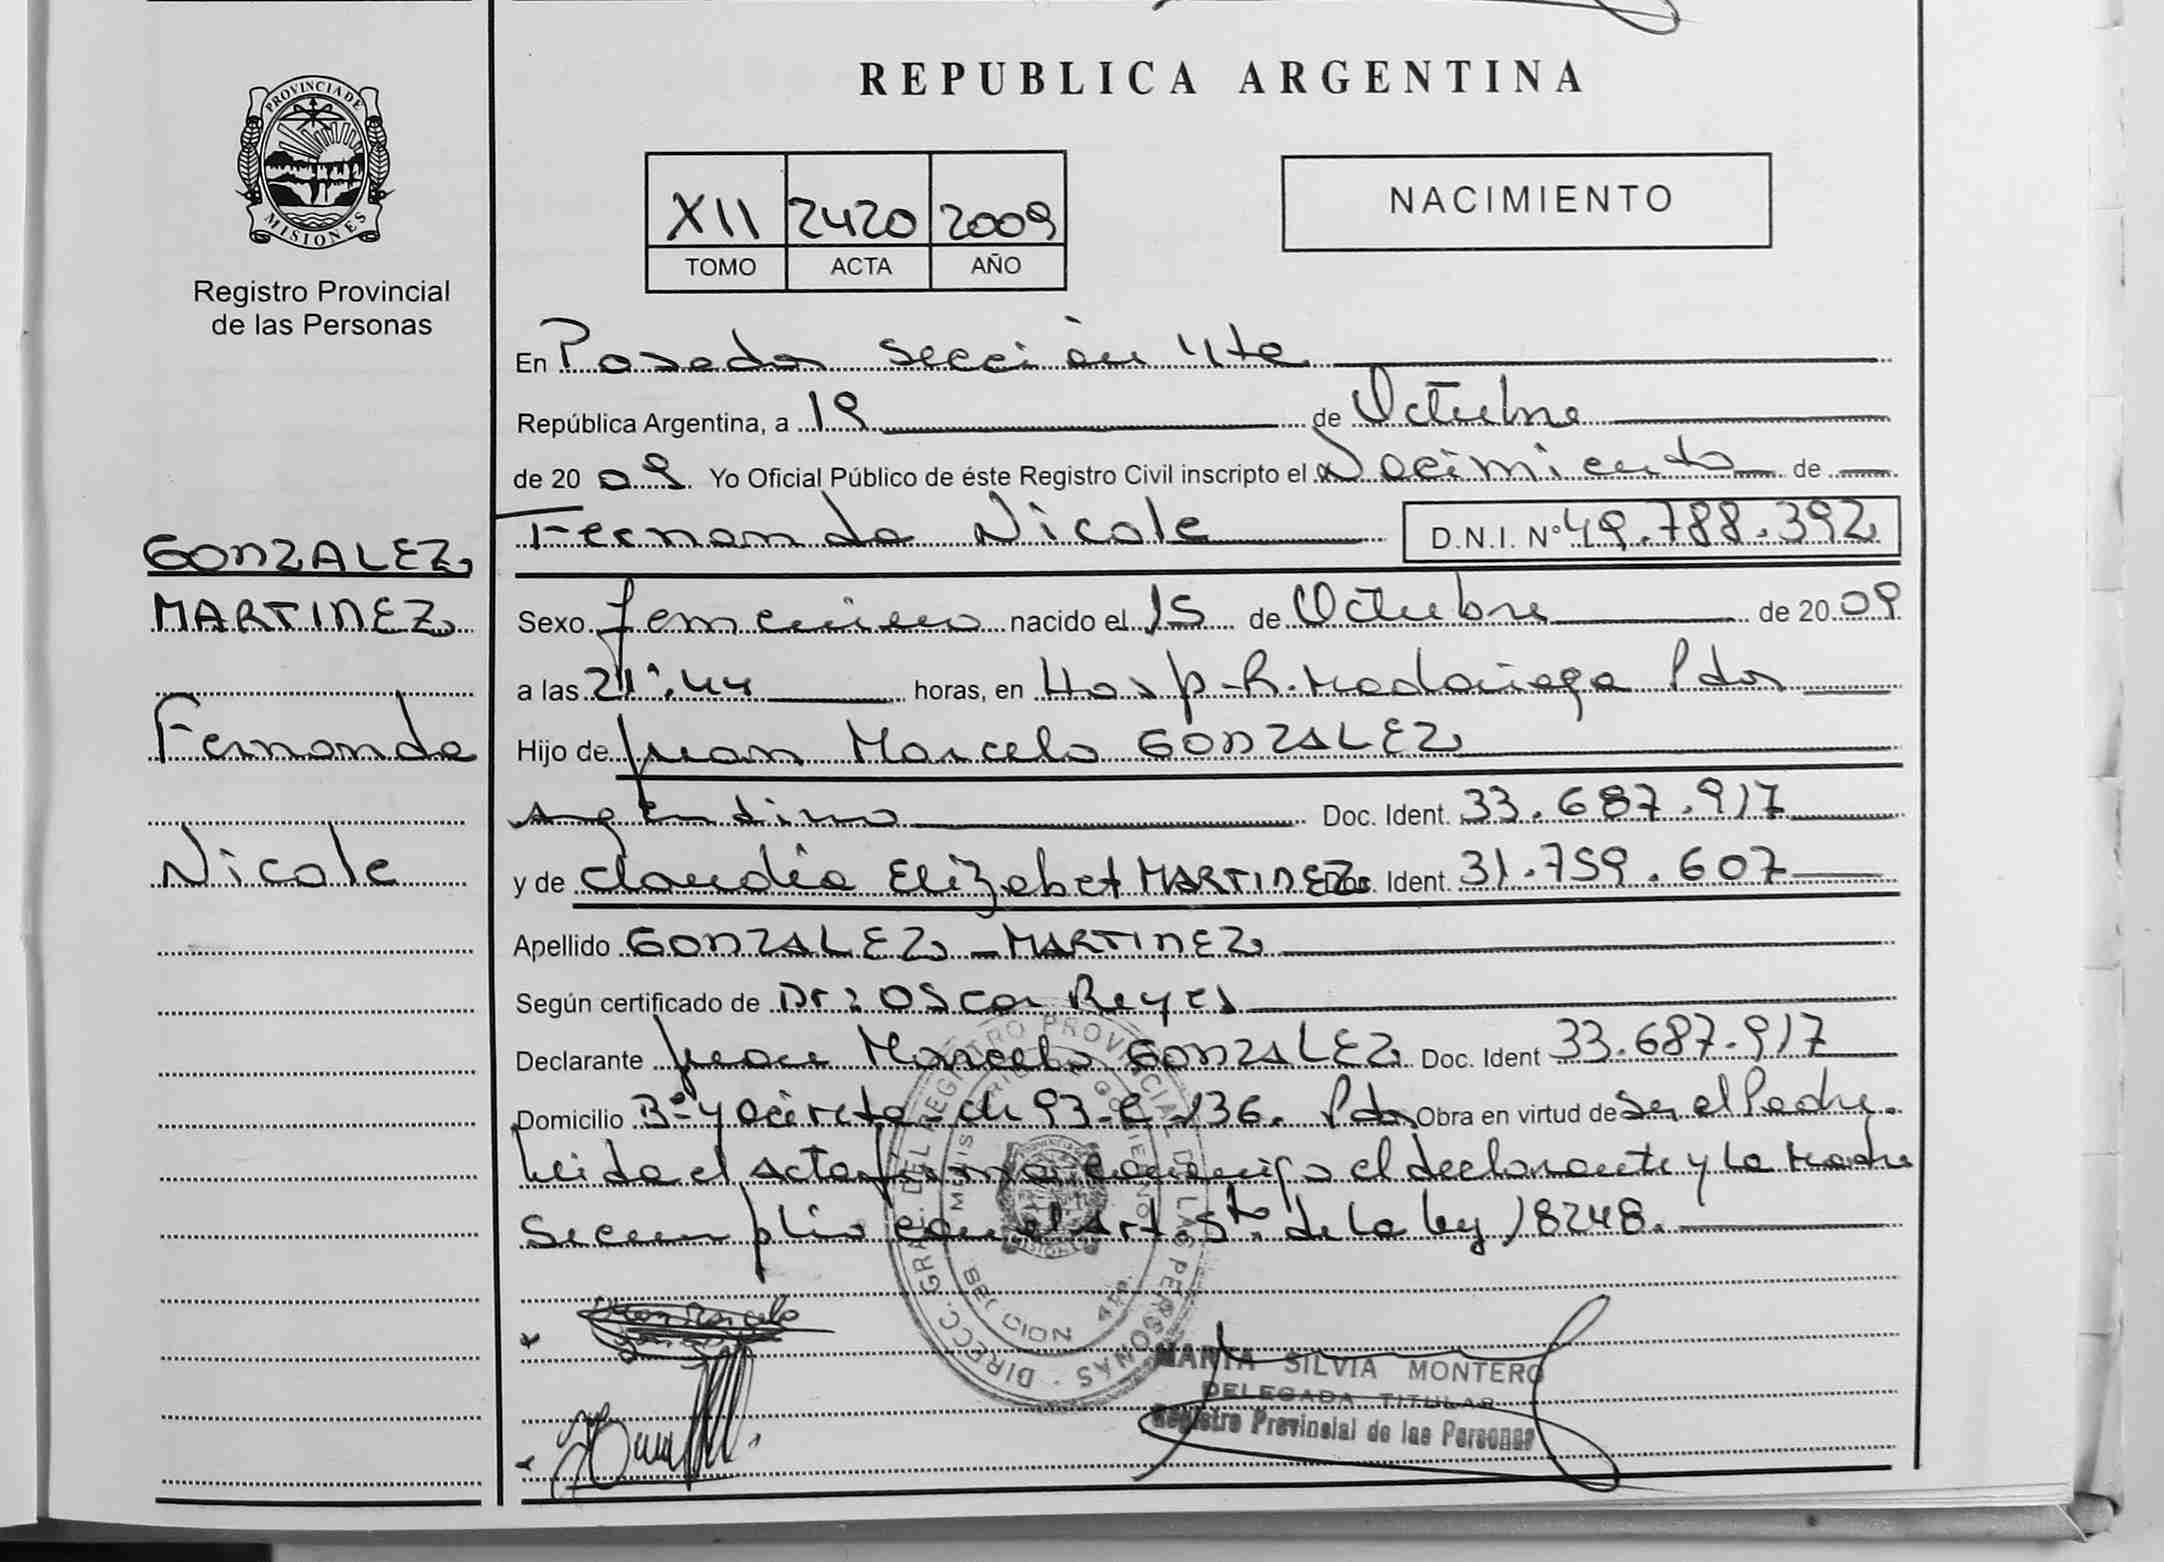 PROVINCIA DE
MISIONES
Registro Provincial
de las Personas
GONZALEZ
MARTINEZ
Fernanda
Nicole
REPUBLICA ARGENTINA
XII 2420 2009
TOMO ACTA AÑO
NACIMIENTO
En Posadas Sección 4ta
República Argentina, a 19 de Octubre
de 2009. Yo Oficial Público de éste Registro Civil inscripto el Nacimiento de
Fernanda Nicole D.N.I. Nº 49.788.392
Sexo femenino nacido el 15 de Octubre de 2009
a las 21:44 horas, en Hosp. R. Madariaga Pdas
Hijo de Juan Marcelo GONZALEZ
Argentino Doc. Ident. 33.687.917
y de Claudia Elizabet MARTINEZ Doc. Ident. 31.759.607
Apellido GONZALEZ - MARTINEZ
Según certificado de Dr: Oscar Reyes
Declarante Juan Marcelo GONZALEZ Doc. Ident 33.687.917
Domicilio Bº Yacireta. ch 93 136. Pdas Obra en virtud de Ser el Padre.
Leida el Acta firma conmigo el declarante y La Madre
Se cumplio con el Art 5to. de La ley 18248.
DIRECC. GRAL. DEL REGISTRO PROVINCIAL DE LAS PERSONAS
MARTA SILVIA MONTERO
DELEGADA TITULAR
Registro Provincial de las Personas